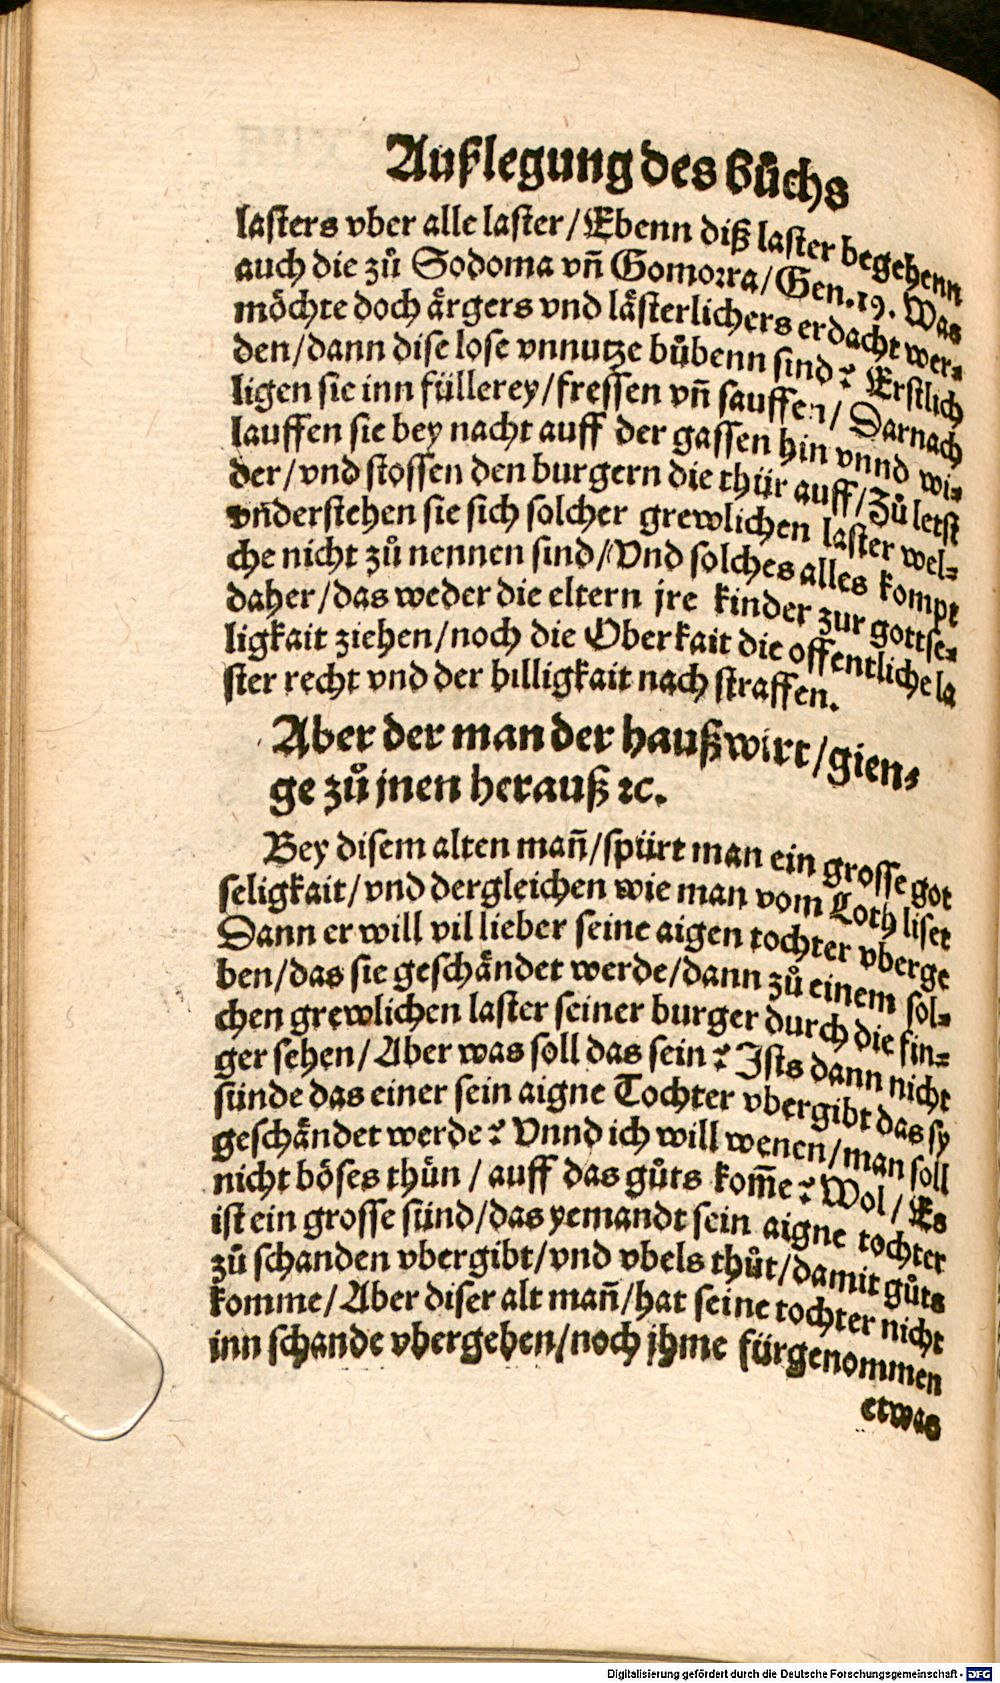 Außlegung des bůchs
lasters vber alle laster/Ebenn diß laster begehenn
auch die zů Sodoma vñ Gomorra/Gen.19. Was
möchte doch ärgers vnd lästerlichers erdacht wer-
den/dann dise lose vnnutze bůbenn sind? Erstlich
ligen sie inn füllerey/fressen vñ sauffen/ Darnach
lauffen sie bey nacht auff der gassen hin vnnd wi-
der/vnd stossen den burgern die thür auff/Zů letst
vnderstehen sie sich solcher grewlichen laster wel-
che nicht zů nennen sind/Vnd solches alles kompt
daher/das weder die eltern jre kinder zur gottse-
ligkait ziehen/noch die Oberkait die offentliche la
ster recht vnd der billigkait nach straffen.
Aber der man der haußwirt/gien-
ge zů jnen herauß ꝛc.
Bey disem alten mañ/spürt man ein grosse got
seligkait/vnd dergleichen wie man vom Loth liset
Dann er will vil lieber seine aigen tochter vberge
ben/das sie geschändet werde/dann zů einem sol-
chen grewlichen laster seiner burger durch die fin-
ger sehen/Aber was soll das sein? Ists dann nicht
sünde das einer sein aigne Tochter vbergibt das sy
geschändet werde? Vnnd ich will wenen/man soll
nicht böses thůn / auff das gůts kom̃e? Wol/Es
ist ein grosse sünd/das yemandt sein aigne tochter
zů schanden vbergibt/vnd vbels thůt/damit gůts
komme/Aber diser alt mañ/hat seine tochter nicht
inn schande vbergeben/noch jhme fürgenommen
etwas
Digitalisierung gefördert durch die Deutsche Forschungsgemeinschaft - DFG